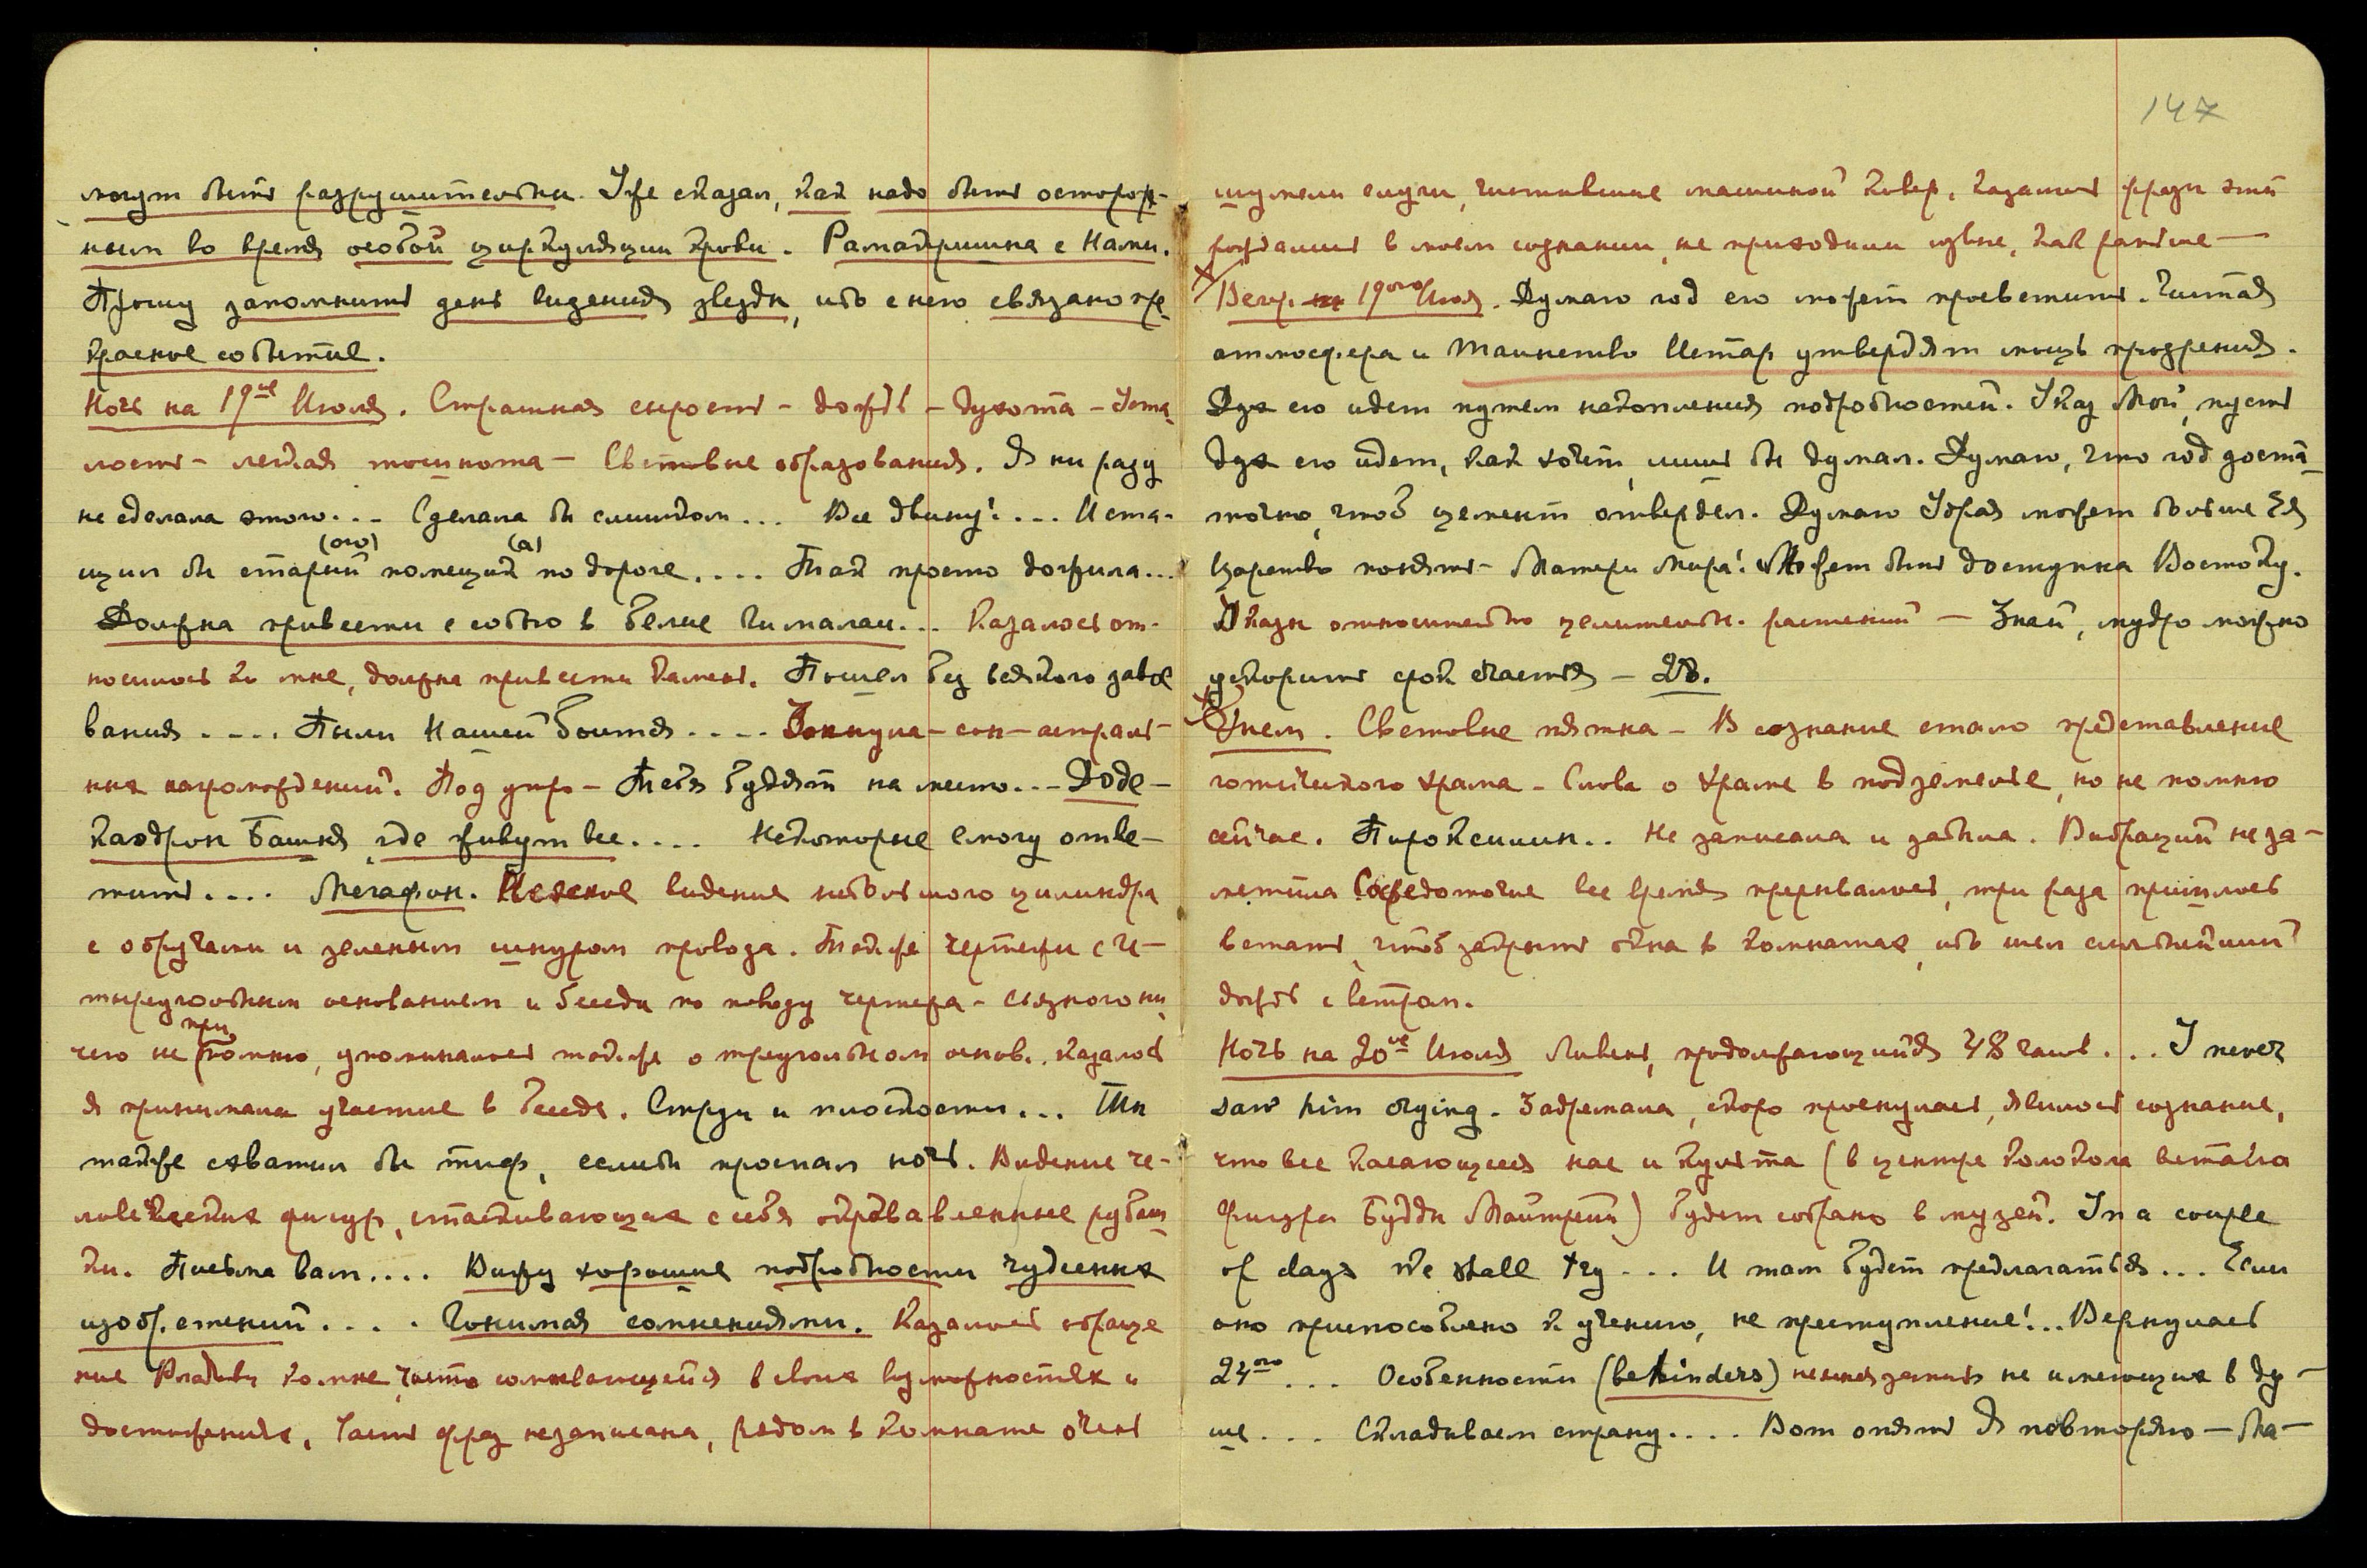 могут быть разрушительны. Уже сказал, как надо быть осторож-
ным во время особой циркуляции крови. Рамакришна с Нами.
Прошу запомнить день видения звезды, ибо с него связано пре
красное событие.
Ночь на 19ое Июля. Страшная сырость – дождь – духота – Уста
лость – легкая тошнота – Световые образования. Я ни разу
не сделала этого... Сделала бы слишком... Все двину!... Иста-
(ого) (а)
щил бы старый помещик по дороге.... Так просто дожила...
Должна привести с собою в белые Гималаи... Казалось от-
носилось ко мне, должна привести камень. Пошел без всякого завое
вания.... Пыли Нашей боится.... Заснула – сон – астраль-
ных нагромождений. Под утро – Тебя будят на место... Доде-
каэдрон Башня, где живут все.... Некоторые смогу отве-
тить.... Мегафон. Неясное видение небольшого цилиндра
с обручами и зеленым шнуром провода. Также чертежи с че-
тыреугольным основанием и беседы по поводу чертежа – связного ни
при
чего не помню, упоминалось также о треугольном основ. казалось
я принимала участие в беседе. Струи и плоскости... Ты
также схватил бы тиф, если бы проспал ночь. Видение че-
ловеческих фигур, стаскивающих с себя окровавленные рубаш
ки. Письма вам.... Вижу хорошие подробности чудесных
изобретений.... Гонимая сомнениями. Казалось обраще
ние Владыки ко мне, часто сомневающейся в своих возможностях и
достижениях. Часть фраз незаписана, рядом в комнате очень
147
шумели слуги, чистившие машиной ковер. Казалось фразы эти
рождались в моем сознании, не приходили извне, как раньше –
Вечер 19ого Июля. Думаю год его может просветить. Чистая
атмосфера и таинство Иштар утвердят мощь прозрения.
Дух его идет путем накопления подробностей. Указ Мой, пусть
дух его идет, как хочет, лишь бы думал. Думаю, что год доста
точно, чтоб цемент отвердел. Думаю Удрая может больше Ея
Царство понять – Матери Мира! Может быть доступна Востоку.
Указы относительно целительн. растений – Знай, мудро можно
ускорить срок счастья –
Днем. Световые пятна – В сознание стало представление
готического храма – Слова о храме в подземелье, но не помню
сейчас. Пироксилин.. Не записала и забыла. Вибраций не за-
метила Сосредоточие все время прерывалось, три раза пришлось
встать, чтоб закрыть окна в комнатах, ибо шел сильнейший
дождь с ветром.
Ночь на 20ое Июля Ливень, продолжающийся 48 часов... I never
saw him crying. Задремала, скоро проснулась, явилось сознание,
что все касающееся нас и культа (в центре колокола вставла
фигура Будды Майтрейи) будет собрано в музей. In a couple
of days we shall try... И там будет предлагаться... Если
оно приспособлено к учению, не преступление!.. Вернулась
24ого... Особенности (behinders) не имеющих в ду-
ше... Складываем страну.... Вот опять я повторяю – Ма-